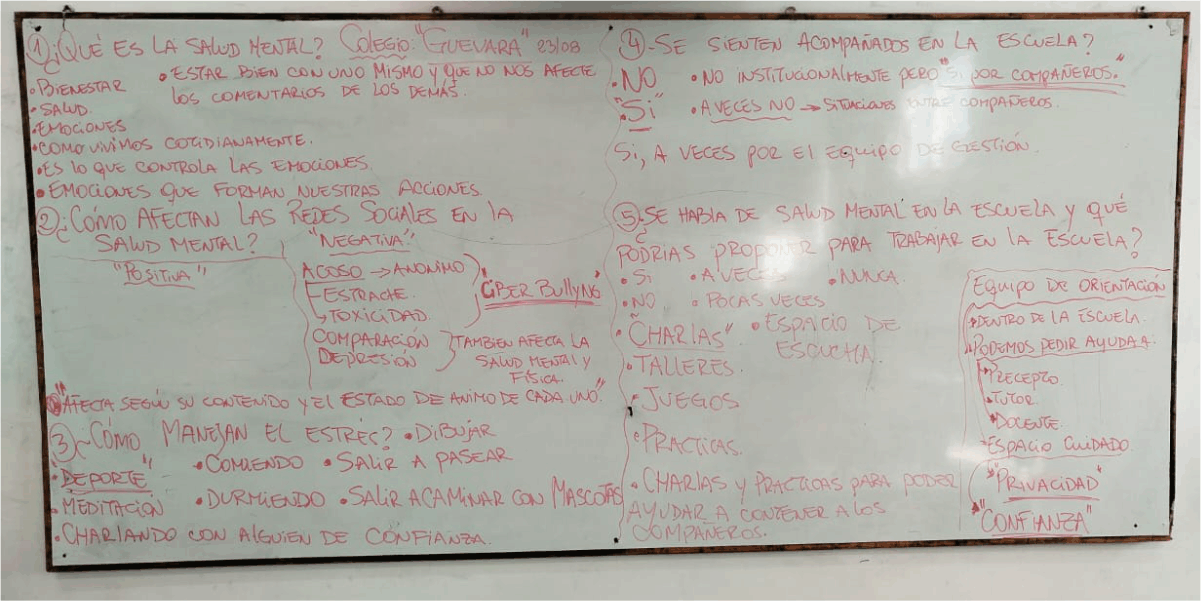 1) ¿QUÉ ES LA SALUD MENTAL? COLEGIO: "GUEVARA" 23/08
• BIENESTAR
• SALUD.
• EMOCIONES
• ESTAR BIEN CON UNO MISMO Y QUE NO NOS AFECTE
LOS COMENTARIOS DE LOS DEMÁS.
• COMO VIVIMOS COTIDIANAMENTE.
• ES LO QUE CONTROLA LAS EMOCIONES.
• EMOCIONES QUE FORMAN NUESTRAS ACCIONES.
2) ¿CÓMO AFECTAN LAS REDES SOCIALES EN LA
SALUD MENTAL?
"POSITIVA"
"NEGATIVA"
ACOSO → ANONIMO
ESTRACHE.
→ TOXICIDAD.
"CIBER BULLYNG"
COMPARACIÓN
DEPRESIÓN
TAMBIEN AFECTA LA
SALUD MENTAL Y
FÍSICA.
"AFECTA SEGÚN SU CONTENIDO Y EL ESTADO DE ANIMO DE CADA UNO."
3) ¿CÓMO MANEJAN EL ESTRÉS? • DIBUJAR
• COMIENDO • SALIR A PASEAR
"DEPORTE"
• MEDITACIÓN • DURMIENDO • SALIR A CAMINAR CON MASCOTAS
• CHARLANDO CON ALGUIEN DE CONFIANZA.
4) SE SIENTEN ACOMPAÑADOS EN LA ESCUELA?
• NO • NO INSTITUCIONALMENTE PERO "SI POR COMPAÑEROS."
"SI" • A VECES NO → SITUACIONES ENTRE COMPAÑEROS.
SI, A VECES POR EL EQUIPO DE GESTIÓN.
5) ¿SE HABLA DE SALUD MENTAL EN LA ESCUELA Y QUÉ
PODRIAS PROPONER PARA TRABAJAR EN LA ESCUELA?
• SI • A VECES • NUNCA.
• NO • POCAS VECES
• "CHARLAS" • ESPACIO DE
ESCUCHA.
• TALLERES.
• JUEGOS
• PRACTICAS.
• CHARLAS Y PRACTICAS PARA PODER
AYUDAR A CONTENER A LOS
COMPAÑEROS.
EQUIPO DE ORIENTACIÓN
• DENTRO DE LA ESCUELA.
• PODEMOS PEDIR AYUDA A:
• PRECEPTO.
• TUTOR
• DOCENTE.
• ESPACIO CUIDADO
• "PRIVACIDAD"
• "CONFIANZA"